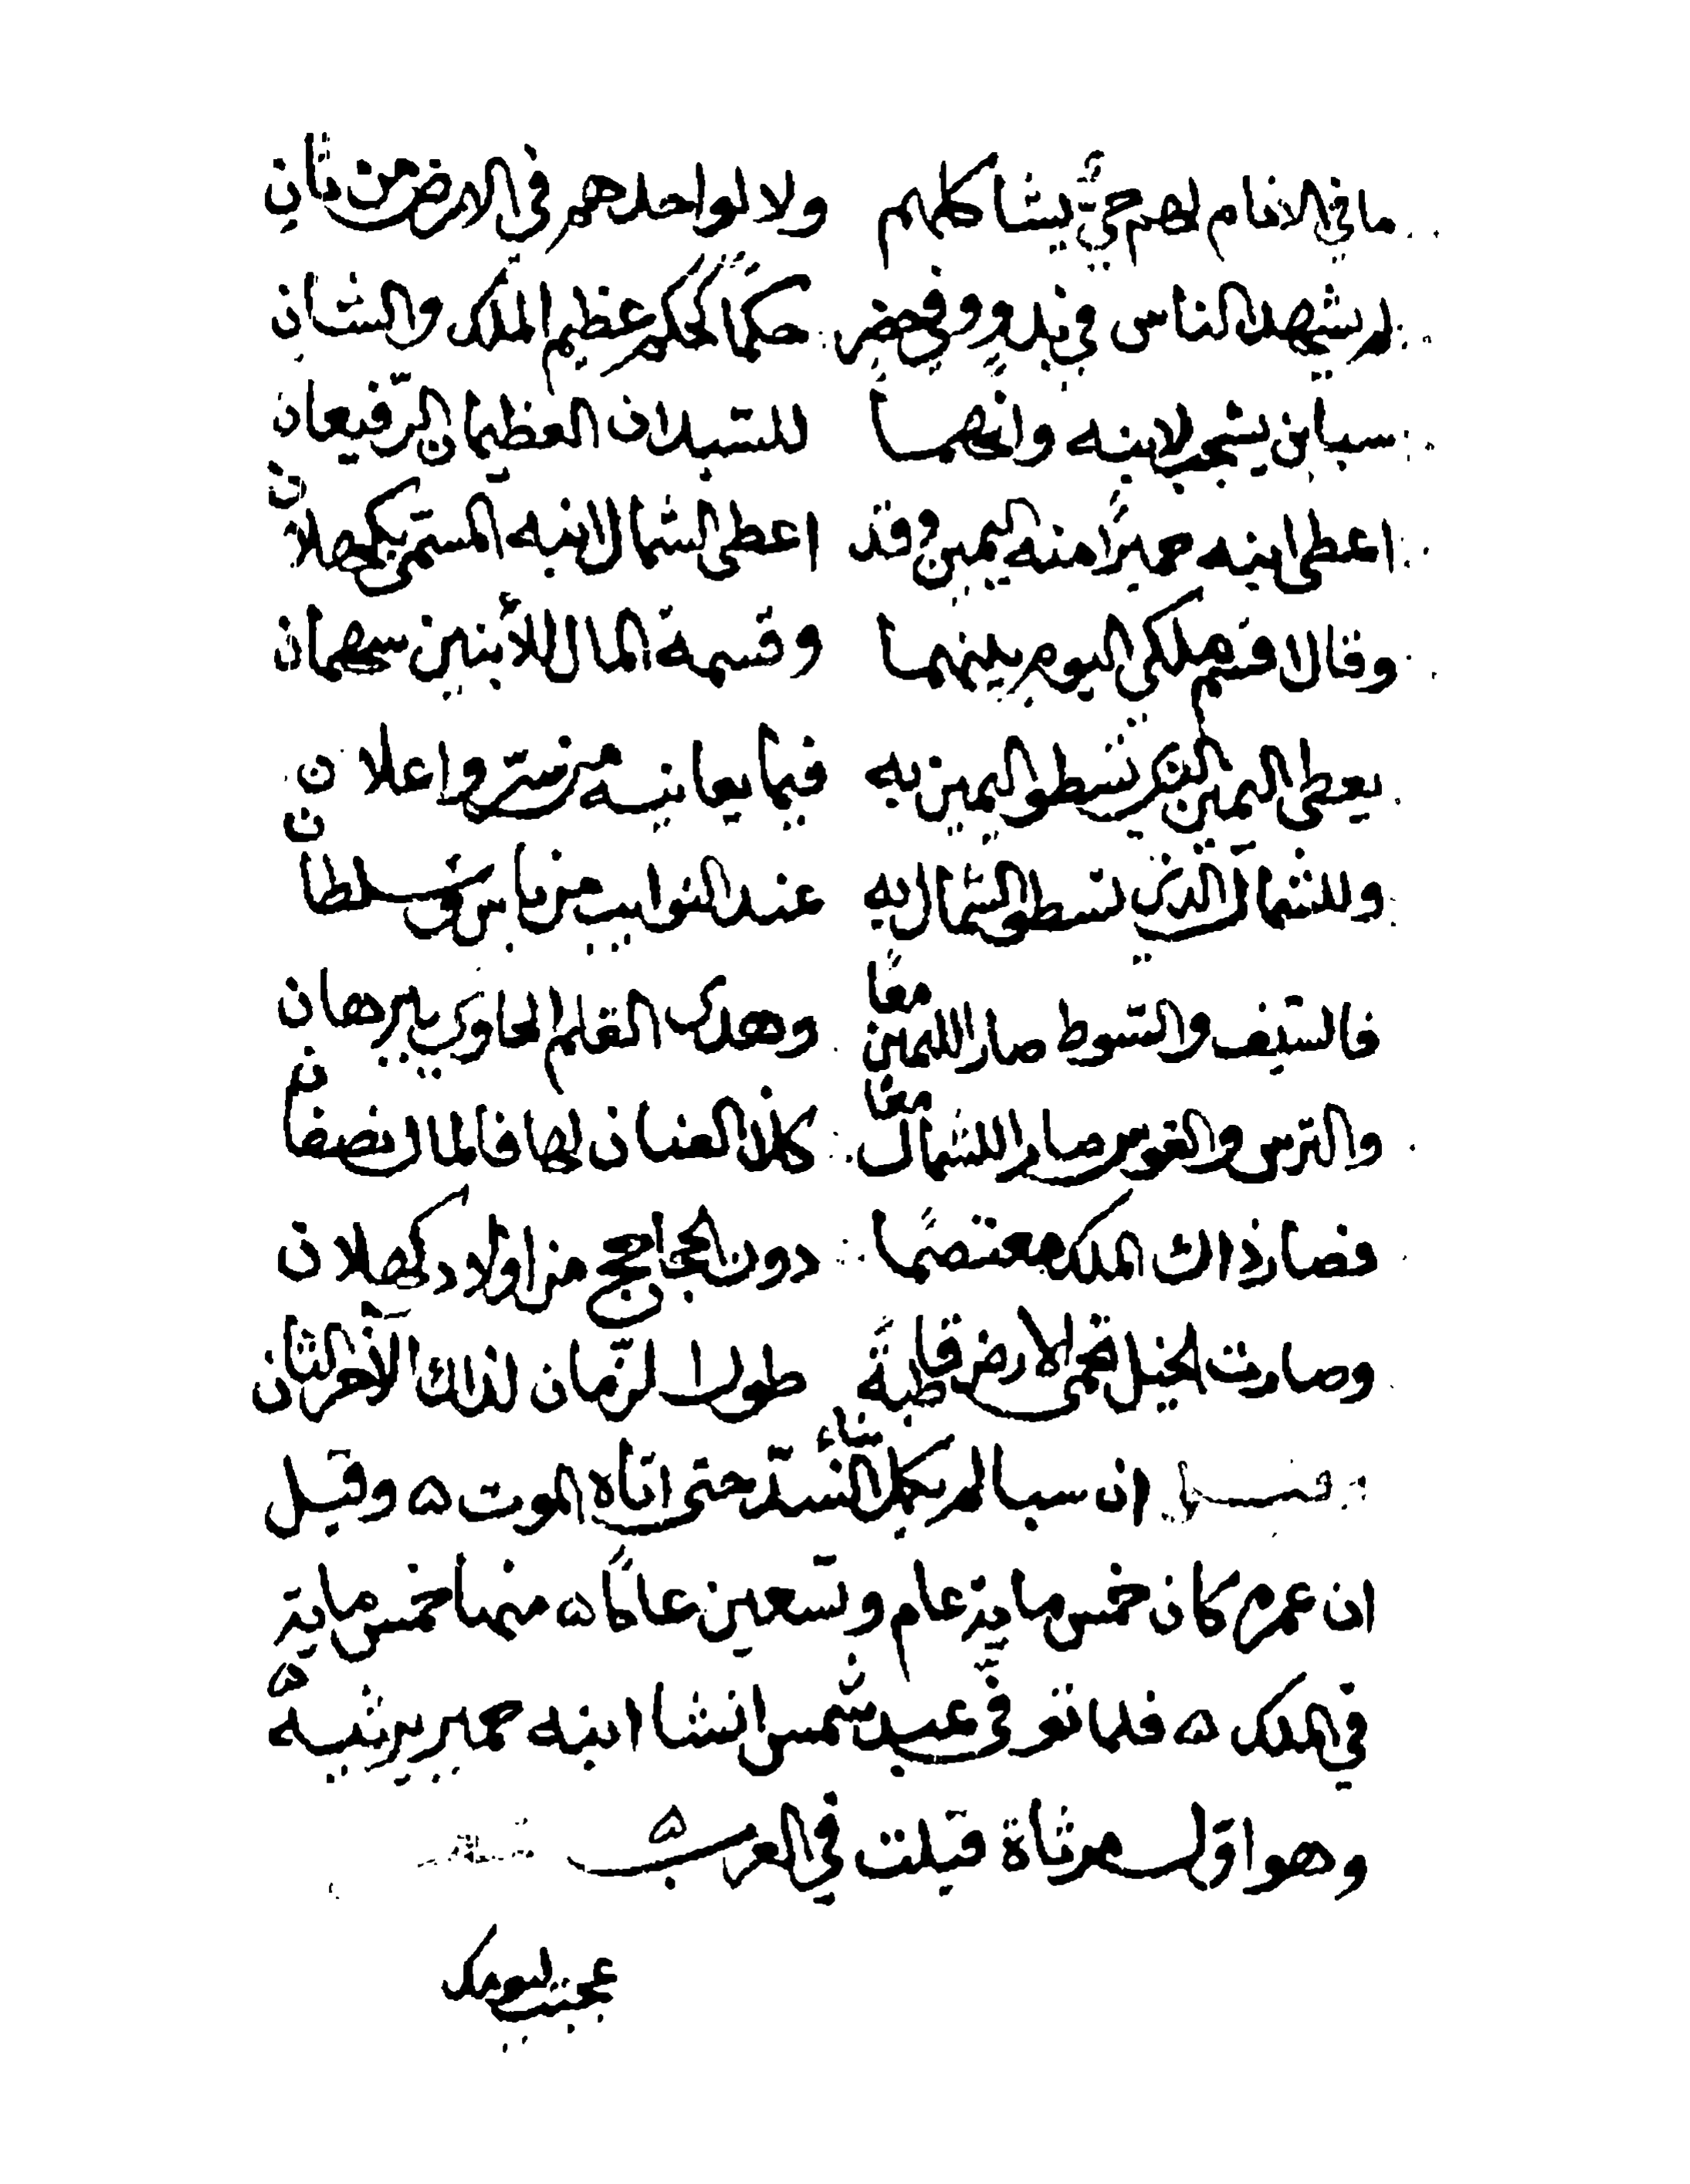 ما في الانام لهم حيٌّ يشاكلهم ولا لواحدهم في الارض من ثان
لم يشهد الناس في بدو وفي حضر حكما كحكم عظيم الملك والشان
سبا بن يشجب لابنيه وانهما للسيدان العظيمان الرّفيعان
اعطى ابنه حميرًا منه اليمين وقد اعطى الشمال ابنه المسمّى بكهلان
وقال اقسم ملكي اليوم بينهما وقسمة المال للأبنين سهمان
يعطى اليمين الذي تسطو اليمين به فيما يعانيه من سرّ واعلان
وللشمال الذي تسطو الشمال به عند النوايب من باس وسلطان
فالسّيف والسّوط صارا لليمين معًا وهدى القلم الحاوي ببرهان
والترس والقوس صارا للشمال معًا كذا العنان لها فالمال نصفان
فصار ذاك الملك معتصمًا دون الجحاجح من اولاد كهلان
وصارت الخيل تحمي الارض قاطبةً طول الزّمان لذاك الآخر الثان
وقيل ان سبا لم يكمل بناء السّد حتى اتاه الموت ه وقيل
ان عمره كان خمس ماية عام وتسعين عامًا ه منها خمس ماية
في الملك ه فلما توفي عبد شمس انشا ابنه حمير يرثيه ه
وهو اوّل مرثاة قيلت في العرب ه
عجبت ليومك